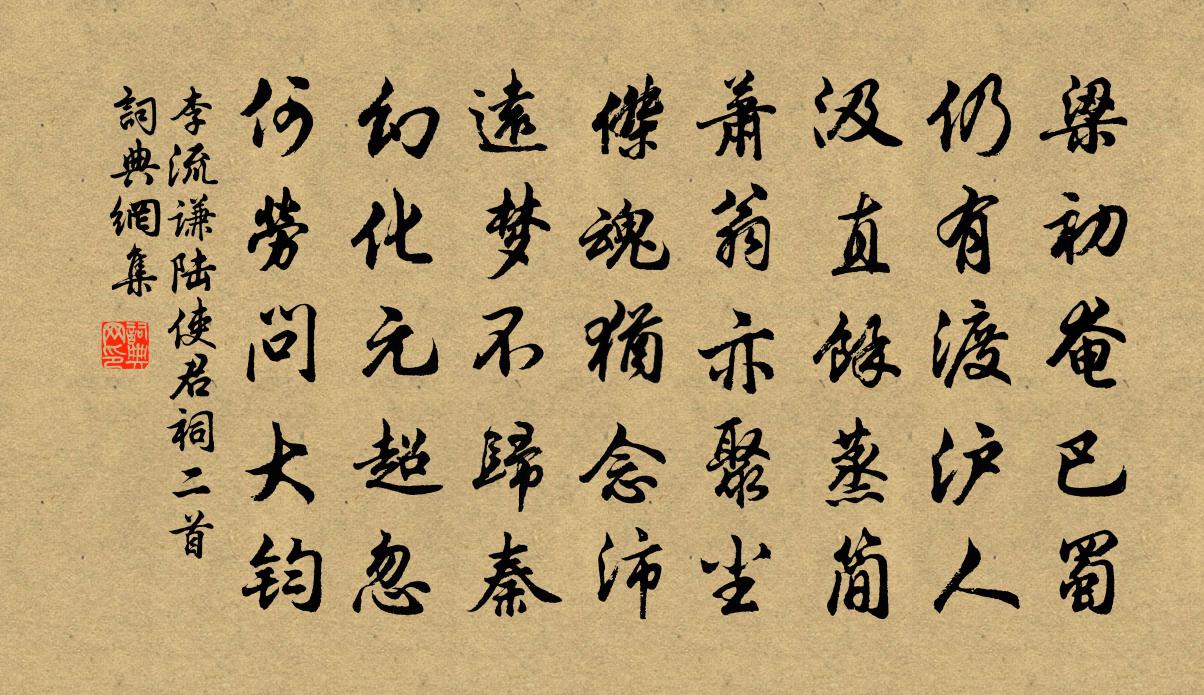 梁初奄巴蜀
仍有渡沪人
汲直餘蒸简
萧翁亦聚尘
傑魂犹念沛
遠梦不歸秦
幻化元超忽
何勞问大钧
李流谦陆使君祠二首
詞典網集
詞典网印